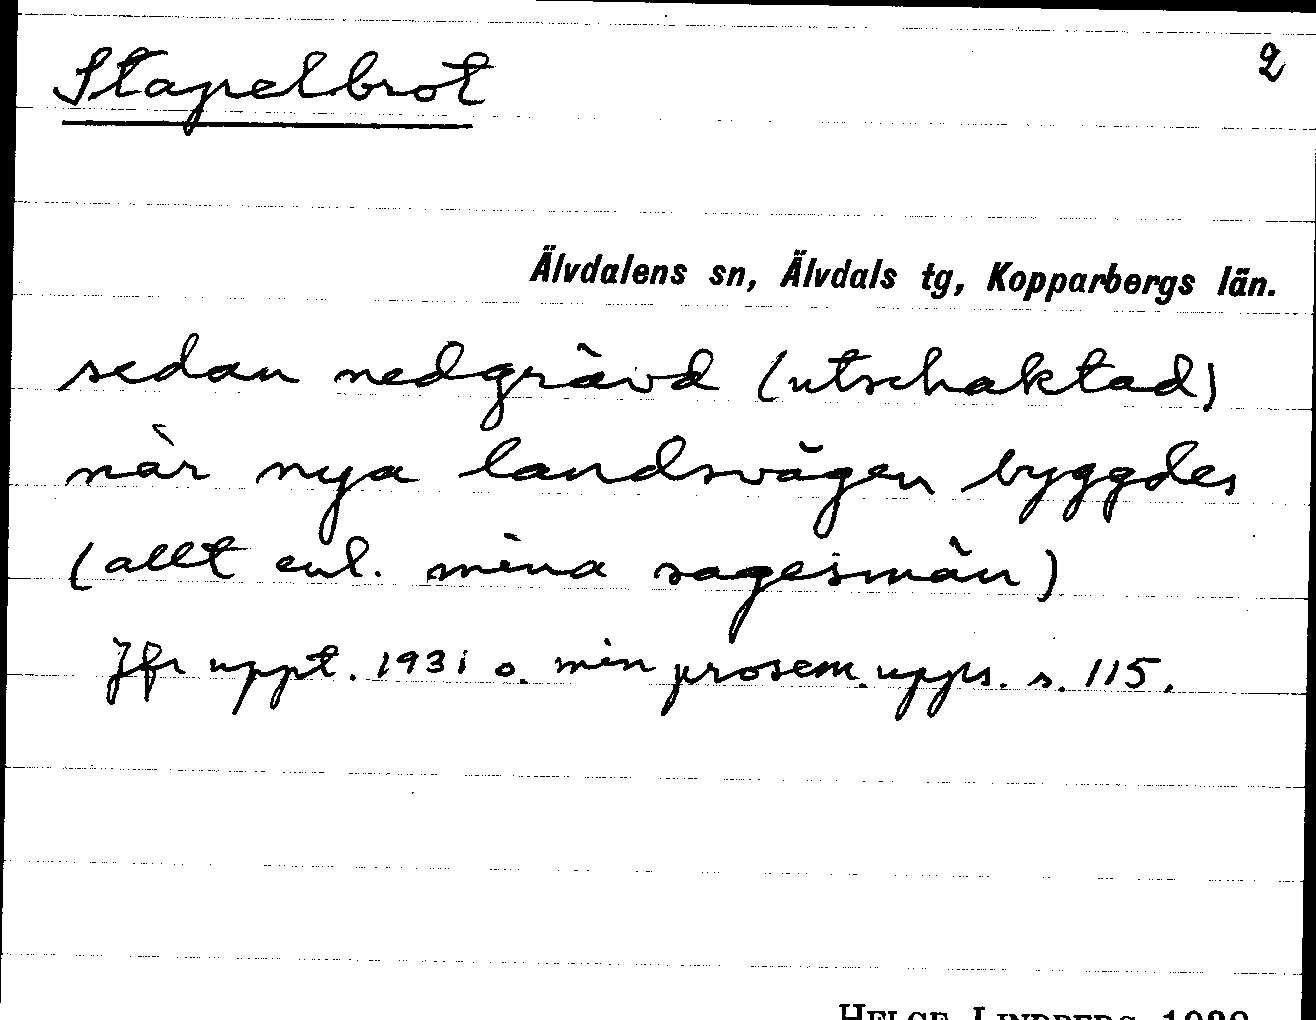 Stapelbrot
2
Älvdalens sn, Älvdals tg, Kopparbergs län.
sedan nedgrävd (utschaktad)
när nya landsvägen byggdes
(allt enl. mina sagesmän)
Jfr uppt. 1931 o. min prosem. upps. s. 115.
HELGE LINDBERG